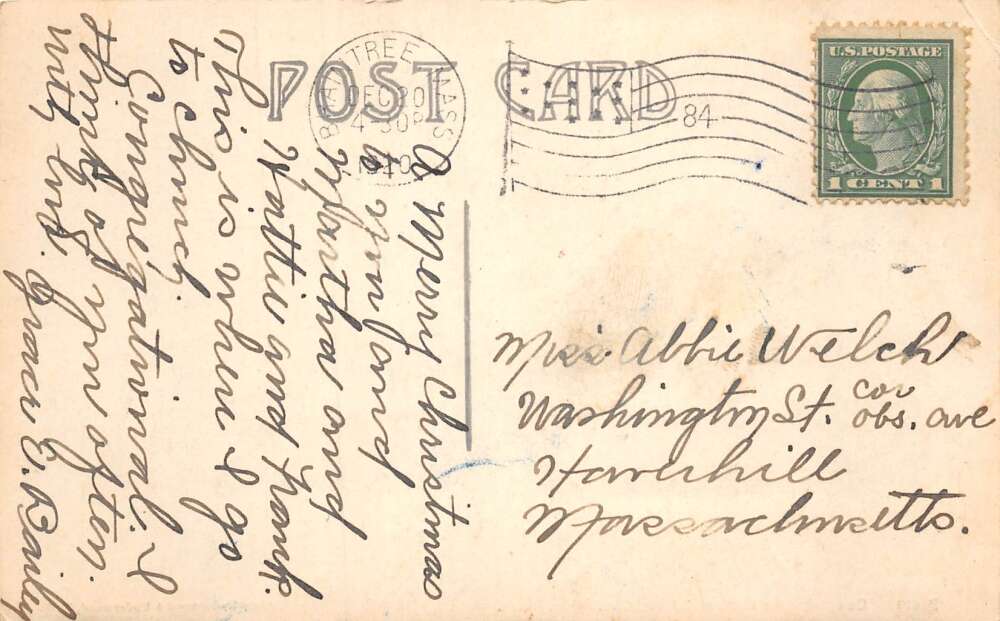 POST CARD
BRAINTREE MASS
DEC 20
4-30 P
1910
84
U.S. POSTAGE
1 CENT 1
A Merry Christmas
to you and
Martha and
Hattie and Frank.
This is where I go
to church.
Congregational. I
think of you often.
with love. Grace E. Bailey
Miss Abbie Welch
Washington St. cor
obs. ave
Haverhill
Massachusetts.